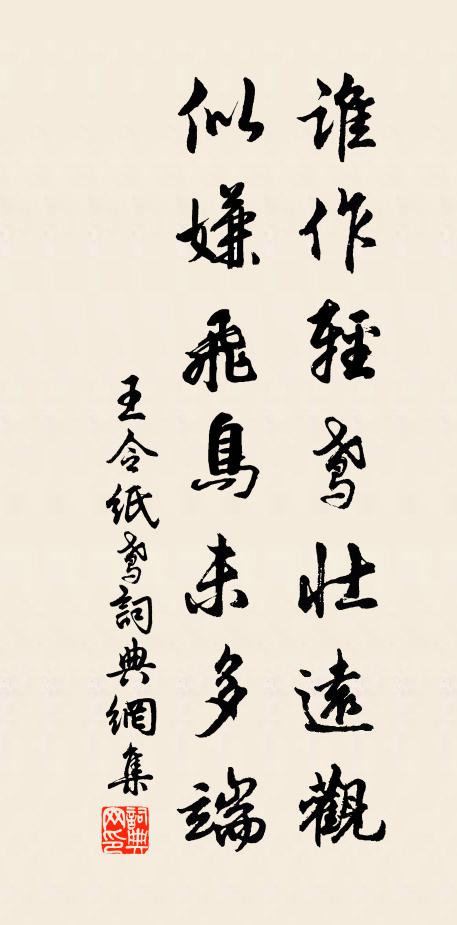 誰作輕鳶壯遠觀
似嫌飛鳥未多端
王令紙鳶詞典網集
詞典網印